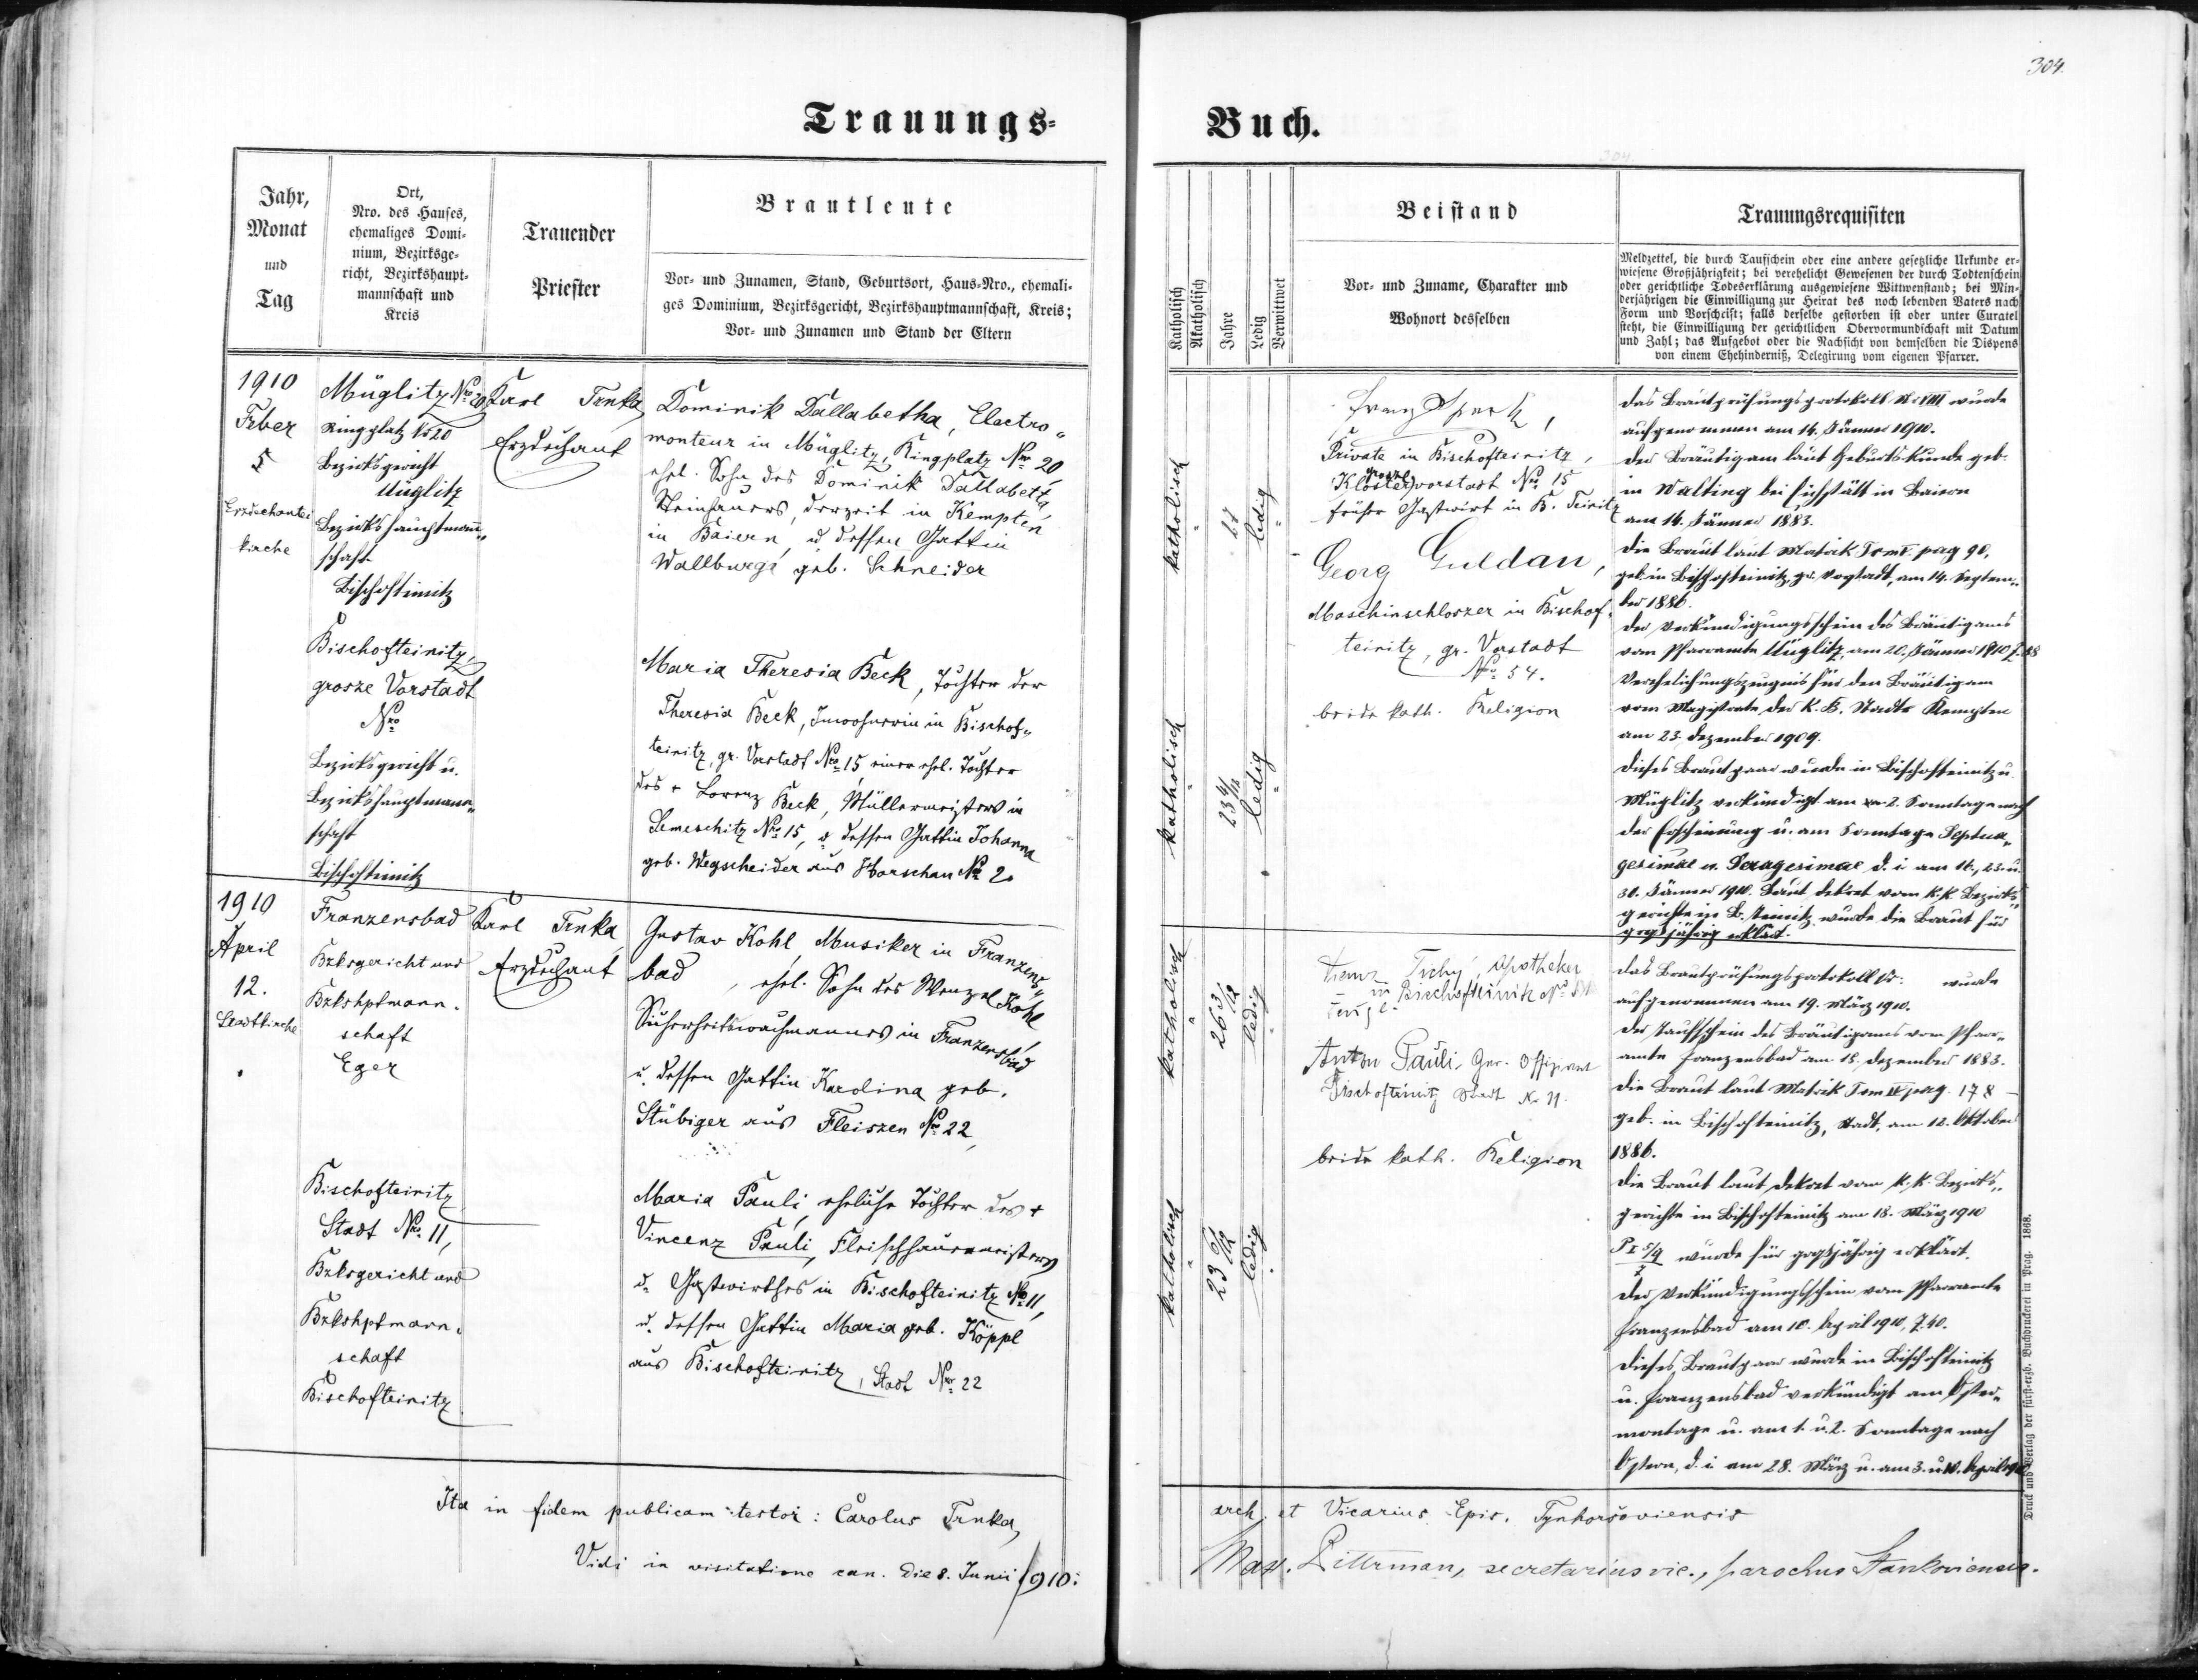 304.
Trauungs-
Buch.
Jahr,
Monat
und
Tag
Ort,
Nro. des Hauses,
ehemaliges Domi-
nium, Bezirksge-
richt, Bezirkshaupt-
mannschaft und
Kreis
Trauender
Priester
Brautleute
Vor- und Zunamen, Stand, Geburtsort, Haus-Nro., ehemali-
ges Dominium, Bezirksgericht, Bezirkshauptmannschaft, Kreis;
Vor- und Zunamen und Stand der Eltern
Katholisch
Akatholisch
Jahre
Ledig
Verwittwet
Beistand
Vor- und Zuname, Charakter und
Wohnort desselben
Trauungsrequisiten
Meldzettel, die durch Taufschein oder eine andere gesetzliche Urkunde er-
wiesene Großjährigkeit; bei verehelicht Gewesenen der durch Todtenschein
oder gerichtliche Todeserklärung ausgewiesene Wittwenstand; bei Min-
derjährigen die Einwilligung zur Heirat des noch lebenden Vaters nach
Form und Vorschrift; falls derselbe gestorben ist oder unter Curatel
steht, die Einwilligung der gerichtlichen Obervormundschaft mit Datum
und Zahl; das Aufgebot oder die Nachsicht von demselben die Dispens
von einem Ehehinderniß, Delegirung vom eigenen Pfarrer.
1910
Feber
5
Erzdechantei
kirche
Müglitz Nro 20
Ringplatz No 20
Bezirksgericht
Müglitz
Bezirkshauptmann-
schaft
Bischofteinitz
Karl Trnka
Erzdechant
Dominik Dallabetha, Electro-
monteur in Müglitz, Ringplatz Nro 20,
ehel. Sohn des Dominik Dallabetta
Steinhauers, derzeit in Kempten
in Baiern, u. dessen Gattin
Wallburga geb. Schneider
Bischofteinitz,
grosze Vorstadt
Nro
Bezirksgericht u.
Bezirkshauptmann-
schaft
Bischofteinitz
Maria Theresia Beck, Tochter der
Theresia Beck, Inwohnerin in Bischof-
teinitz, gr. Vorstadt Nro 15, einer ehel. Tochter
des + Lorenz Beck, Müllermeisters in
Semeschitz Nro 15, u. dessen Gattin Johanna
geb. Wegscheider aus Horschau Nro 2.
katholisch
27
ledig
katholisch
23 4/12
ledig
Franz
Private in Bischofteinitz,
grosze
Klostervorstadt Nro 15
früher Gastwirt in B. Teinitz
Georg Guldan,
Maschinschloszer in Bischof-
teinitz, gr. Vorstadt
Nro 54.
beide kath. Religion
Das Brautprüfungsprotokoll No VIII wurde
aufgenommen am 14. Jänner 1910.
Der Bräutigam laut Geburtskunde geb.
in Walting bei Eichstätt in Baiern
am 14. Jänner 1883.
Die Braut laut Matrik Tom V. pag 90,
geb. in Bischofteinitz, gr. Vorstadt, am 14. Septem-
ber 1886.
Der Verkündigungsschein des Bräutigams
vom Pfarramte Müglitz, am 20. Jänner 1910 Z. 38
Verehelichungszeugnis für den Bräutigam
vom Magistrate der K. B. Stadt Kempten
am 23. Dezember 1909.
Dieses Brautpaar wurde in Bischofteinitz u.
Müglitz verkündigt am 2. Sonntage nach
der Erscheinung u. am Sonntage Septua-
gesimae u. Sexagesimae d. i. am 16., 23. u.
30. Jänner 1910. Laut Dekret vom K. K. Bezirks-
gerichte in B. Teinitz wurde die Braut für
großjährig erklärt.
1910
April
12.
Stadtkirche
Franzensbad
Bzksgericht und
Bzkshptmann-
schaft
Eger
Karl Trnka
Erzdechant
Gustav Kohl, Musiker in Franzens-
bad, ehel. Sohn des Wenzel Kohl
Sicherheitswachmannes in Franzensbad
u. dessen Gattin Karolina geb.
Stübiger aus Fleiszen Nro 22,
Bischofteinitz
Stadt Nro 11,
Bzksgericht und
Bzkshptmann-
schaft
Bischofteinitz
Maria Pauli, eheliche Tochter des +
Vincenz Pauli, Fleischhauermeisters
u. Gastwirthes in Bischofteinitz Nro 11,
u. dessen Gattin Maria geb. Köppl
aus Bischofteinitz, Stadt Nro 22
katholisch
26 3/12
ledig
katholisch
23 6/12
ledig
Tichý, Apotheker
in Bischofteinitz No
Zeuge.
Anton Pauli, Offiziant
Bischofteinitz Stadt Nr 11.
beide kath. Religion
Das Brautprüfungsprotokoll No: wurde
aufgenommen am 19. März 1910.
Der Taufschein des Bräutigams vom Pfarr-
amte Franzensbad am 15. Dezember 1883.
Die Braut laut Matrik Tom IV pag. 178 -
geb. in Bischofteinitz, Stadt, am 12. Oktober
1886.
Die Braut laut Dekret vom k. k. Bezirks-
gerichte in Bischofteinitz am 18. März 1910
P I 5/9 wurde für großjährig erklärt.
Der Verkündigungsschein vom Pfarramte
Franzensbad am 10. April 1910, Z. 40.
Dieses Brautpaar wurde in Bischofteinitz
u. Franzensbad verkündigt am Oster-
montage u. am 1. u. 2. Sonntage nach
Ostern, d. i. am 28. März u. am 3. u. 10. April 1910
Ita in fidem publicam testor: Carolus Trnka,
arch. et Vicarius Epis. Tynhoršoviensis
Vidi in visitatione can. die 8. Junii 1910:
Max. Pittrman, secretarius vic., parochus Stankoviensis.
Druck und Verlag der fürst-erzb. Buchdruckerei in Prag. 1868.